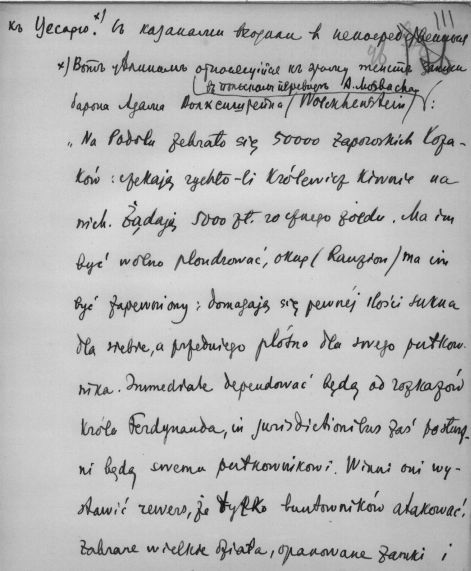 къ Цесарю. x) Съ казаками входили в непосредственныя
111
x) Вотъ относящійся къ этому текстъ записки
въ польскомъ переводѣ A. Mosbacha
барона Адама Волкенштейна (Wolckhenstein):
„Na Podolu zebrało się 50000 zaporoskich Koza-
ków: czekają rychło-li Królewicz kiwnie na
nich. Żądają 5000 zł. rocznego żołdu. Ma im
być wolno plondrować, okup (Ranzion) ma im
być zapewniony; domagają się pewnéj ilości sukna
dla siebie, a przedniego płótno dla swego pułkow-
nika. Immediate dependować będą od rozkazów
Króla Ferdynanda, in jurisdictionibus zaś posłusz-
ni będą swemu pułkownikowi. Winni oni wy-
stawić rewers, że tylko buntowników atakować.
Zabrane wielkie działa, opanowane zamki i